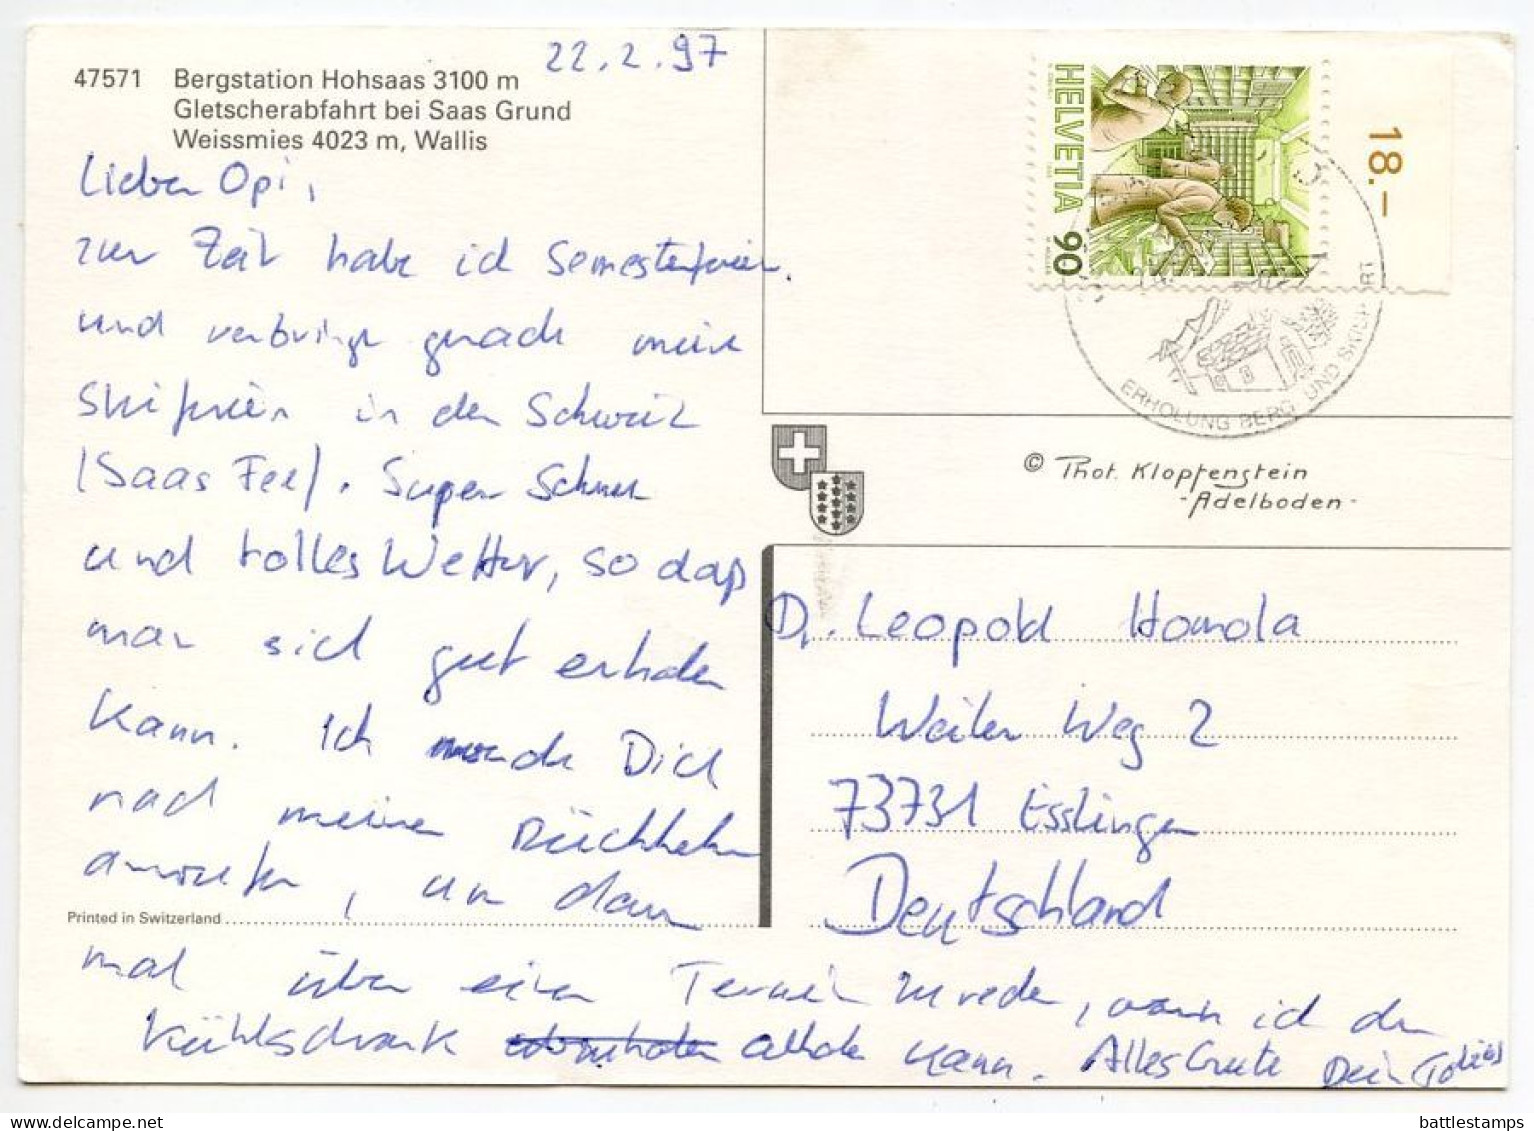 22.2.97
47571 Bergstation Hohsaas 3100 m
Gletscherabfahrt bei Saas Grund
Weissmies 4023 m, Wallis
Lieber Opi,
zur Zeit habe ich Semesterferien.
und verbringe gerade meine
Skiferien in der Schweiz
(Saas Fee). Super Schnee
und tolles Wetter, so daß
man sich gut erholen
kann. Ich werde Dich
nach meiner Rückkehr
anrufen, um dann
Printed in Switzerland
mal über einen Termin zu reden, wann ich den
Kühlschrank abholen kann. Alles Gute Dein Tobias
HELVETIA 90
18.–
ERHOLUNG BERG- UND
© Phot. Klopfenstein
- Adelboden -
Dr. Leopold Homola
Weiler Weg 2
73731 Esslingen
Deutschland
battlestamps